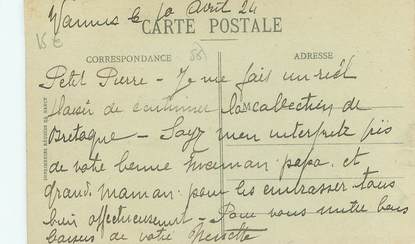 Vannes le 10 Avril 24
CARTE POSTALE
15 €
CORRESPONDANCE
ADRESSE
Petit Pierre - Je me fais un réel
plaisir de continuer la collection de
Bretagne - Soyez mon interprète près
de votre bonne maman papa et
grand maman pour les embrasser tous
bien affectueusement - Pour vous
bons
baisers de votre